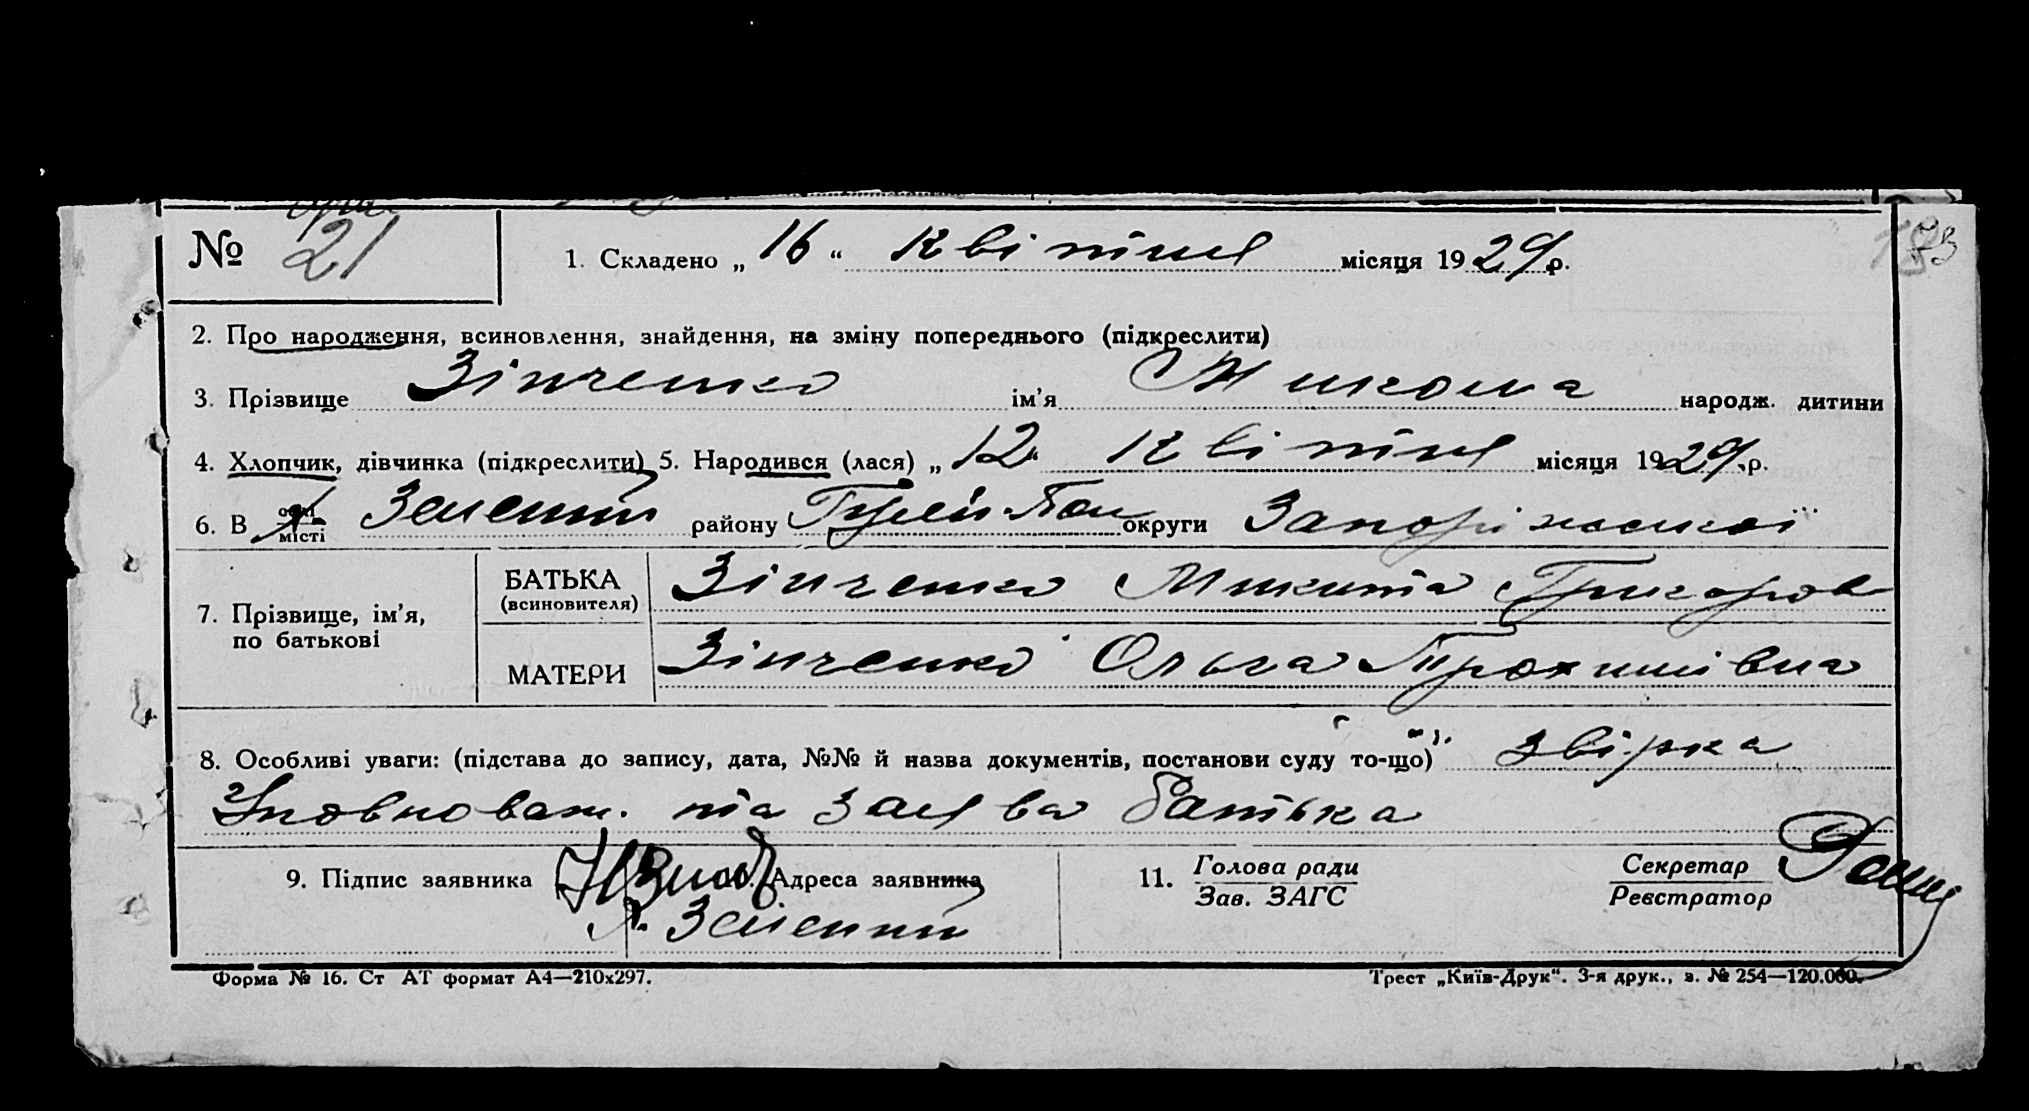 № 21
1. Складено „ 16 “ квітня місяця 1929 р.
2. Про народження, всиновлення, знайдення, на зміну попереднього (підкреслити)
3. Прізвище Зінченко ім’я Микола народж. дитини
4. Хлопчик, дівчинка (підкреслити) 5. Народився (лася) „ 12 “ квітня місяця 1929 р.
6. В селі Зелений району Гуляй-Пол округи Запоріжської
місті
7. Прізвище, ім’я, по батькові
БАТЬКА (всиновителя) Зінченко Микита Григоров
МАТЕРИ Зінченко Ольга Трохимівна
8. Особливі уваги: (підстава до запису, дата, №№ й назва документів, постанови суду то-що) звірка
Уповноваж. та заява батька
9. Підпис заявника Адреса заявника
х. Зелений
11. Голова ради
Зав. ЗАГС
Секретар
Реєстратор
Форма № 16. Ст АТ формат А4—210х297.
Трест „Київ-Друк“. 3-я друк., з. № 254—120.000.